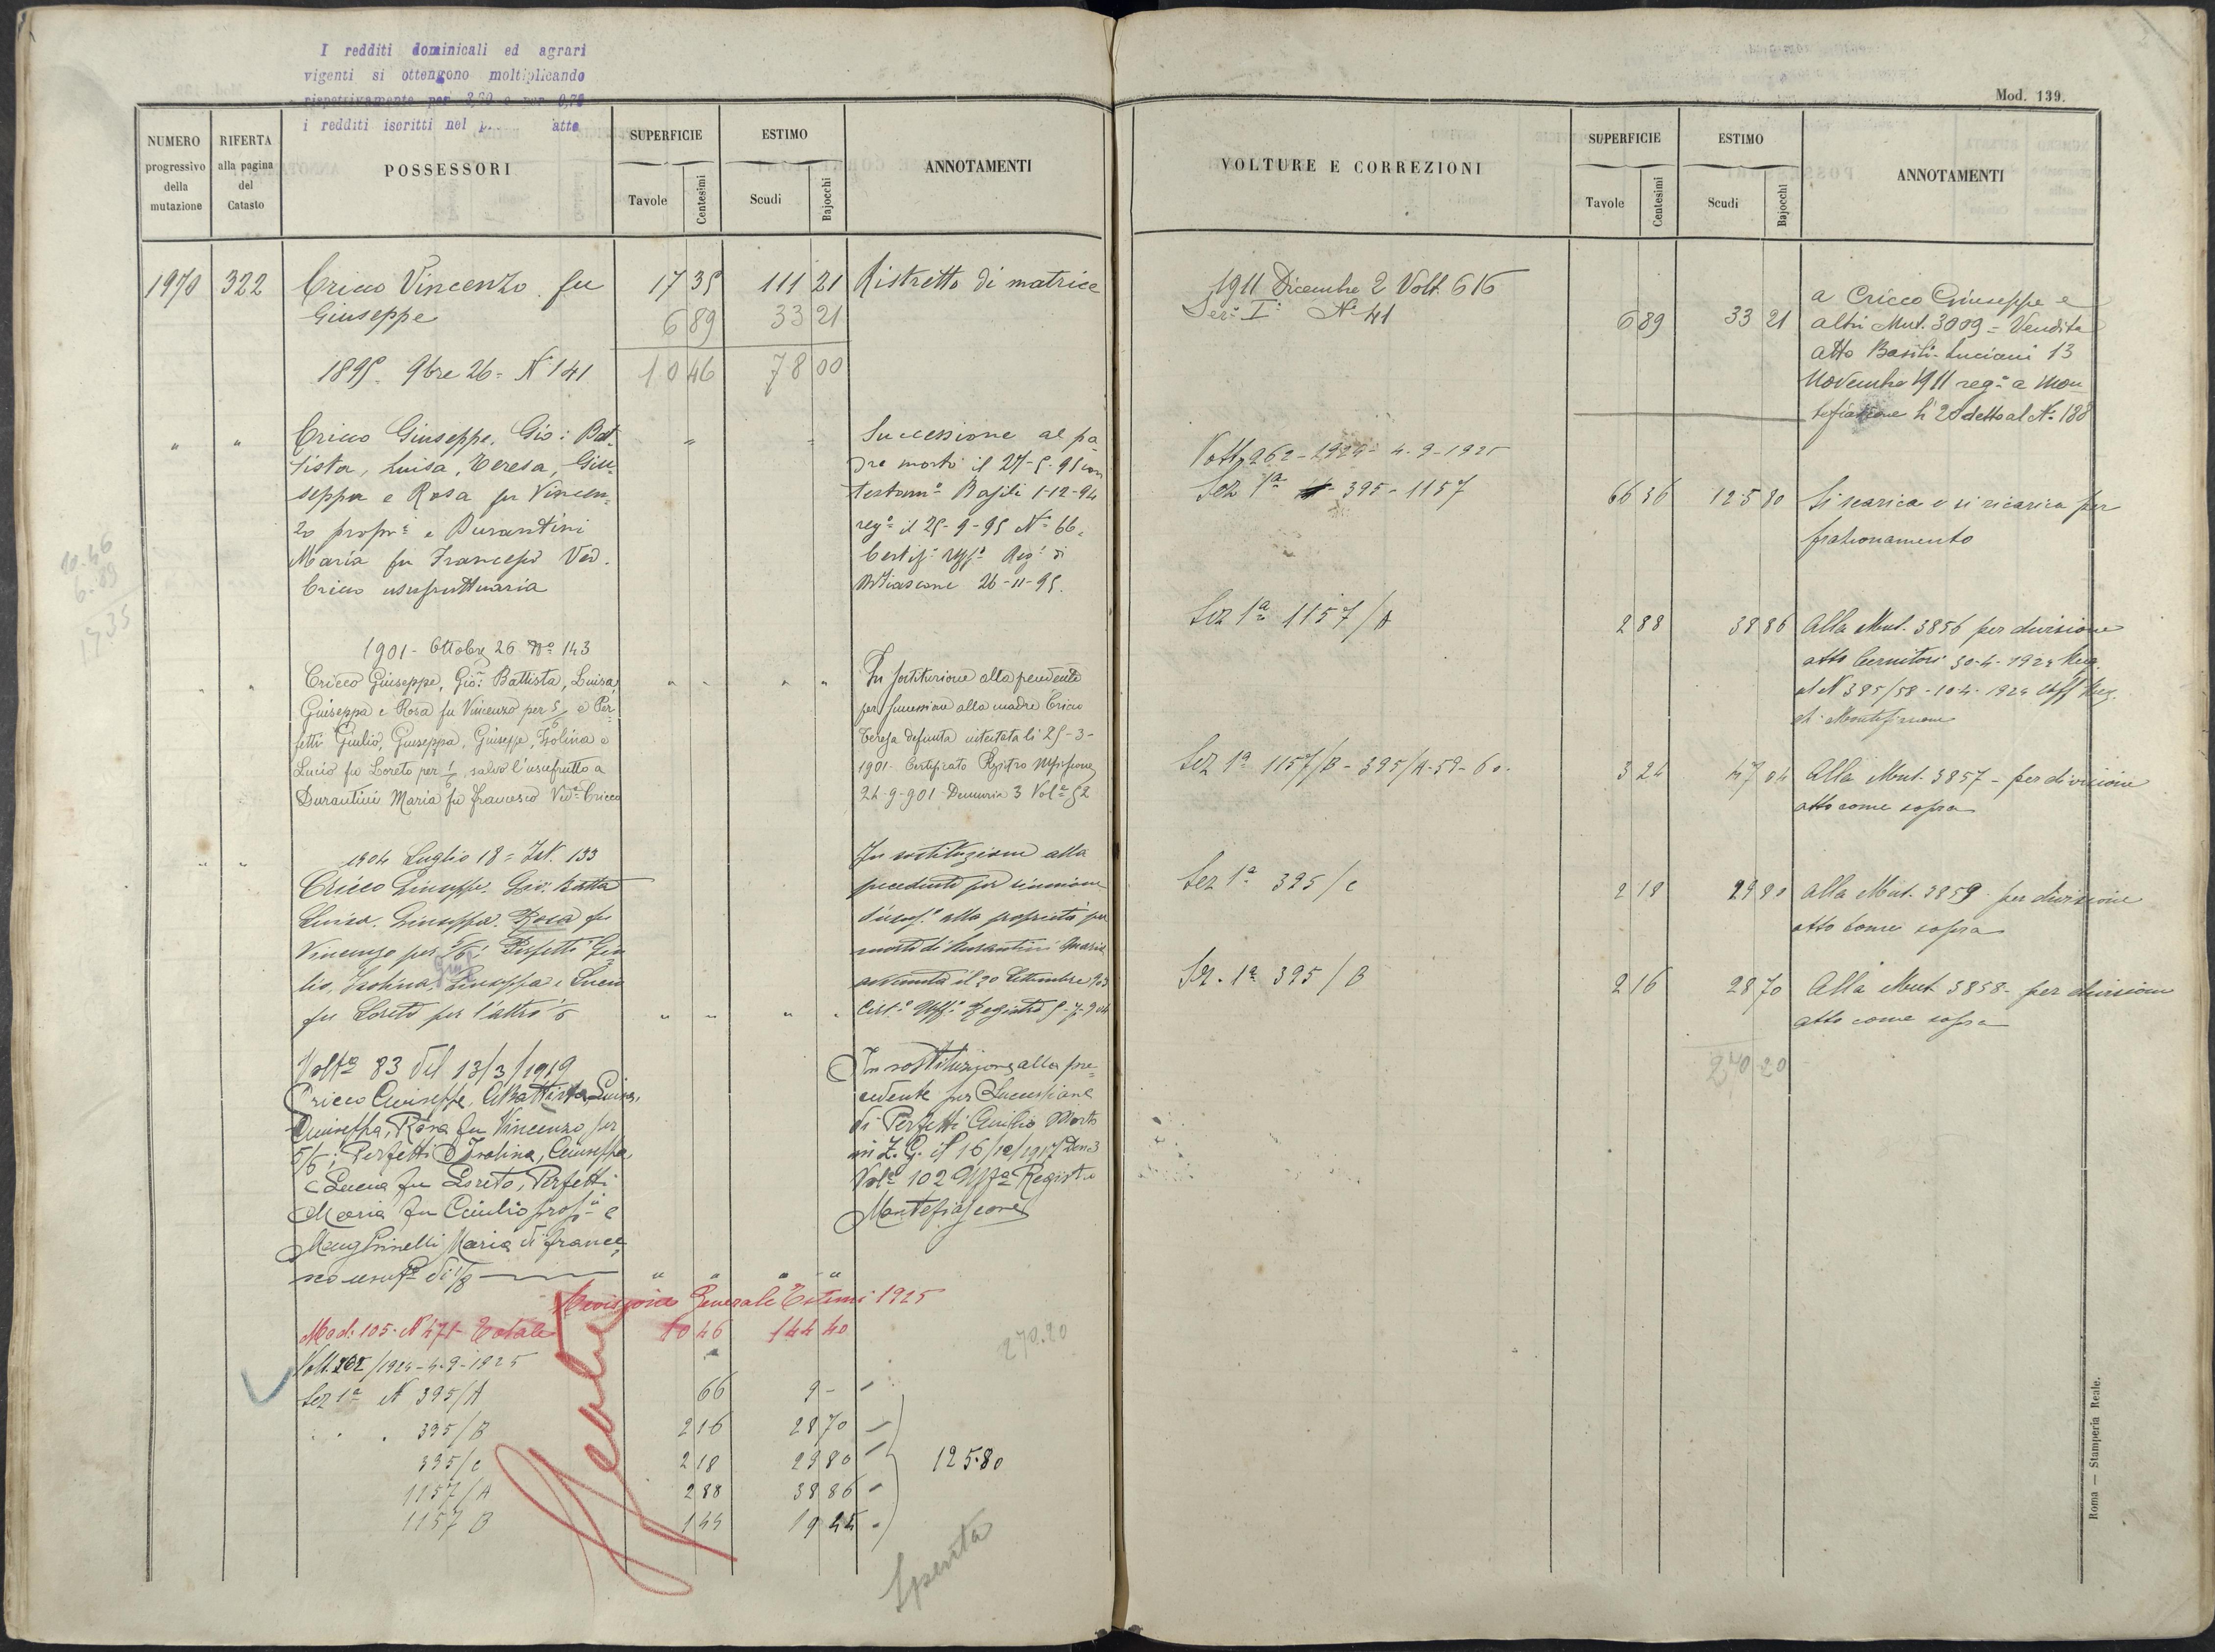 I redditi dominicali ed agrari
vigenti si ottengono moltiplicando
rispettivamente per
i redditi iscritti nel
NUMERO
progressivo
della
mutazione
RIFERTA
alla pagina
del
Catasto
POSSESSORI
SUPERFICIE
Tavole
Centesimi
ESTIMO
Scudi
Bajocchi
ANNOTAMENTI
1970 322 Cricco Vincenzo fu 17 35 111 21 Ristretto di matrice
Giuseppe 6 89 33 21
1895. 9bre 26 = N° 141 10 46 78 00
" " Cricco Giuseppe, Gio: Bat- " " Successione al pa-
tista, Luisa, Teresa, Giu- dre morto il 27-5-95 con
seppa e Rosa fu Vincen- testamo Basili 1-12-94
zo propri e Durantini rego il 25-9-95 N° 66.
Maria fu Francesco Ved. Certifo Uffo Rego di
Cricco usufruttuaria Mtefiascone 26-11-95.
10.46
6.89
17 35
1901 - Ottobre 26 No 143
" " Cricco Giuseppe, Gio: Battista, Luisa, " " " " In sostituzione alla precedente
Giuseppa e Rosa fu Vincenzo per 5/6 e Per- per successione alla madre Cricco
fetti Giulio, Giuseppa, Giuseppe, Isolina e Teresa defunta intestata li 25-3-
Lucia fu Loreto per 1/6, salvo l'usufrutto a 1901 - Certificato Registro
Durantini Maria fu Francesco Veda Cricco 24-9-901 - Denunzia 3 Vole 52
" " 1904 Luglio 18 = 133 In sostituzione alla
Cricco Giuseppe. Gio: Batta precedente per riunione
Luisa. Giuseppa. Rosa fu d'usofo alla proprietà per
Vincenzo per 5/6 Perfetti Giu- morte di Durantini Maria
lio, Isolina, Giuseppa e Lucia avvenuta il 30 Settembre 903
fu Loreto per l'altro 1/6 " " " " Certo Uffo Registro 5-7-904
Volta 83 del 13/3/1919 In sostituzione alla pre-
Cricco Giuseppe, GBattista, Luisa, cedente per Successione
Giuseppa, Rosa fu Vincenzo per di Perfetti Giulio Morto
5/6; Perfetti Isolina, Giuseppa, in Z. G. il 16/12/1917 Den 3
e Lucia fu Loreto, Perfetti Vole 102 Uffo Registro
Maria fu Giulio propi e Montefiascone
Maria di France-
sco usufa di 1/8 " " " "
Revisione Generale Estimi 1925
Mod: 105 - N° 471 - Totale 10 46 144 40
270.20
Volt. 262/1924 - 4-9-1925
Sez 1a N 395/A 66 9 -
" " 395/B 2 16 28 70
395/C 2 18 29 80 125.80
1157/A 2 88 38 86
1157 B 1 44 19 44
Sperita
Mod. 139.
VOLTURE E CORREZIONI
SUPERFICIE
Tavole
Centesimi
ESTIMO
Scudi
Bajocchi
ANNOTAMENTI
1911 Dicembre 2 Volt. 616 a Cricco Giuseppe e
Sez: I: N° 41 6 89 33 21 altri Mut. 3009 = Vendita
atto Basili-Luciani 13
Novembre 1911 rego a Mon
tefiascone li 20 detto al N: 188
Volt. 262 - 1924 - 4-9-1925
Sez 1a 395 - 1157 66 36 125 80 Si scarica e si ricarica per
frazionamento
Sez 1a 1157/A 2 88 38 86 Alla Mut. 3856 per divisione
atto 30-4-1924 Reg.
al N 385/58 - 10-4-1924 Uff Reg.
di Montefiascone
Sez 1a 1157/B - 395/A - 59 - 60. 3 24 47 04 Alla Mut. 3857 - per divisione
atto come sopra
Sez 1a 395/C 2 18 29 80 Alla Mut. 3859 per divisione
atto come sopra
Sez. 1a 395/B 2 16 28 70 Alla Mut 3858 - per divisione
atto come sopra
270 20
Roma — Stamperia Reale.